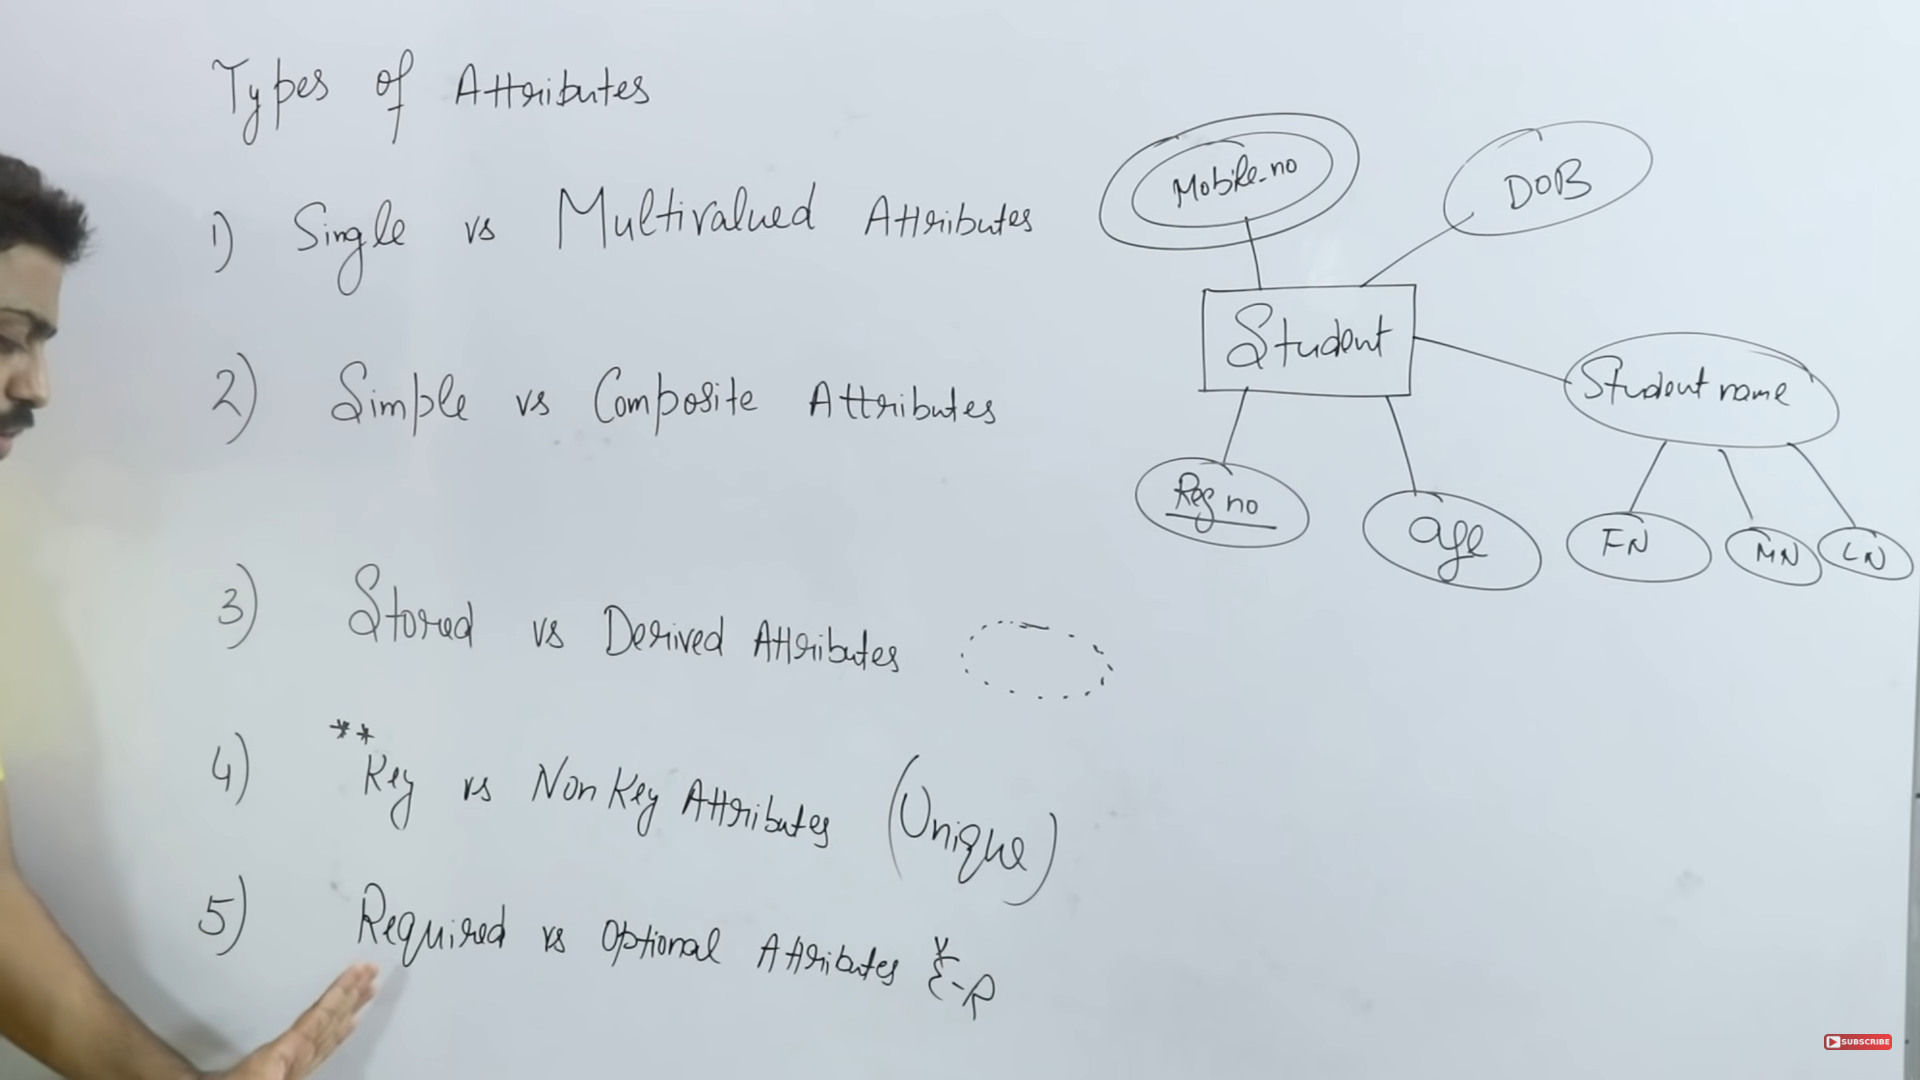 Types of Attributes
1) Single vs Multivalued Attributes
2) Simple vs Composite Attributes
3) Stored vs Derived Attributes
**
4) Key vs Non Key Attributes (Unique)
5) Required vs Optional Attributes E-R
Mobile_no
DOB
Student
Student name
Reg no
age
FN
MN
LN
SUBSCRIBE